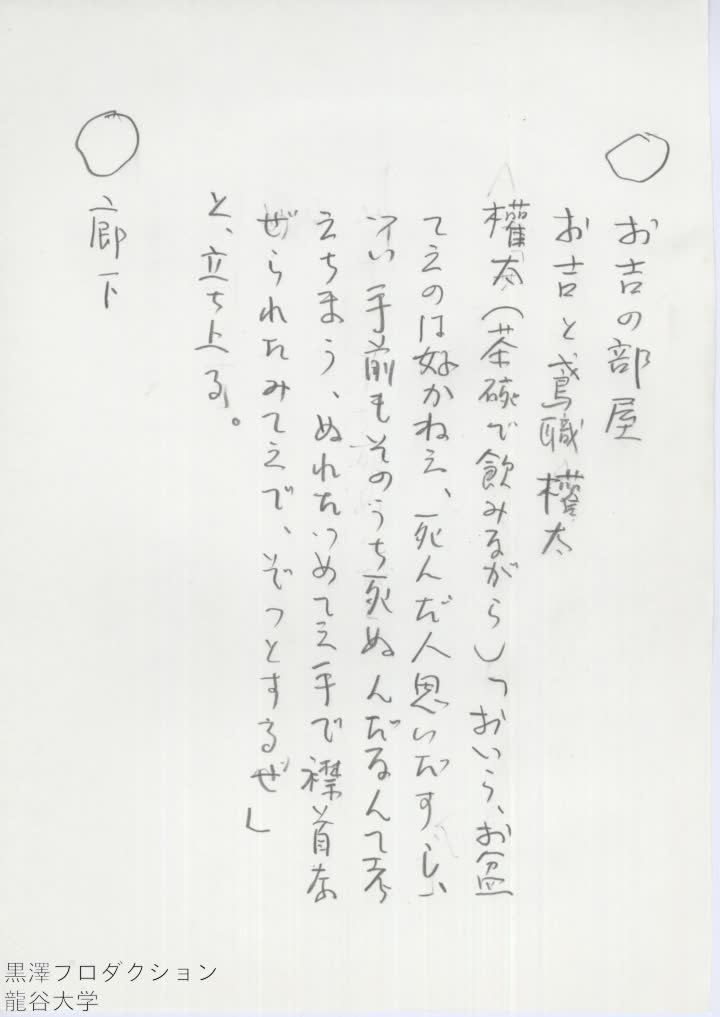 ○ お吉の部屋
お吉と鳶職権太
権太(茶碗で飲みながら)「おいら、お盆
てえのは好かねえ、死んだ人思いだすし、
つい手前もそのうち死ぬんだなんて考
えちまう、ぬれたつめてえ手で襟首な
ぜられたみてえで、ぞっとするぜ」
と、立ち上る。
○ 廊下
黒澤プロダクション
龍谷大学